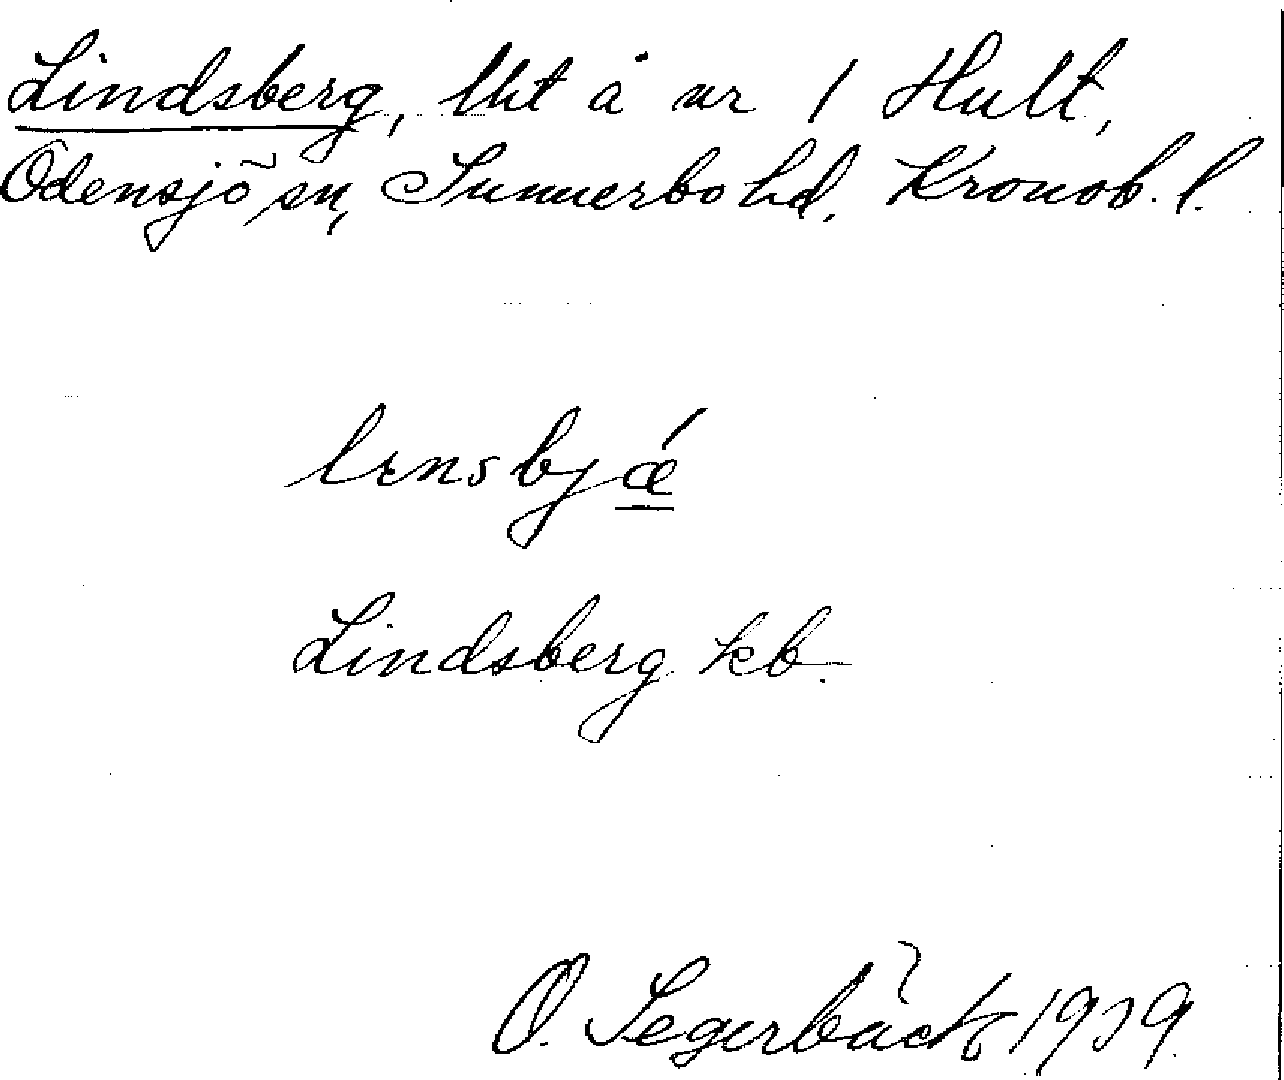 Lindsberg, lht å nr 1 Hult,
Odensjö sn, Sunnerbo hd, Kronob. l.
lensbjǽ
Lindsberg kb.
O. Segerbäck 1939